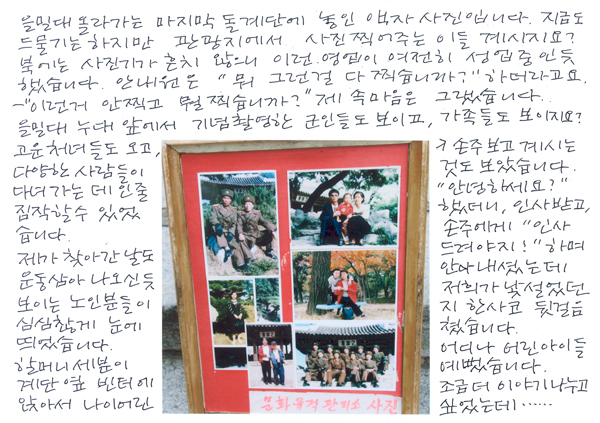 을밀대 올라가는 마지막 돌계단에 놓인 액자 사진입니다. 지금도
드물기는 하지만 관광지에서 사진 찍어주는 이들 계시지요?
북에는 사진기가 흔치 않으니 이런 영업이 여전히 성업중인듯
했습니다. 안내원은 "뭐 그런걸 다 찍습니까?" 하더라고요.
-"이런거 안찍고 뭘 찍습니까?" 제 속마음은 그랬습니다.
을밀대 누대 앞에서 기념촬영한 군인들도 보이고, 가족들도 보이지요?
고운 처녀들도 오고,
다양한 사람들이
다녀 가는 데 인줄
짐작할 수 있었
습니다.
제가 찾아간 날도
운동삼아 나오신듯
보이는 노인분들이
심심찮게 눈에
띄었습니다.
할머니 세분이
계단 옆 빈터에
앉아서 나이어린
손주보고 계시는
것도 보았습니다.
"안녕하세요?"
했더니, 인사받고,
손주에게 "인사
드려야지!" 하며
안아 내셨는데
저희가 낯설었던
지 한사코 뒷걸음
쳤습니다.
어디나 어린아이들
예뻤습니다.
조금 더 이야기 나누고
싶었는데……
문화유적 관리소 사진